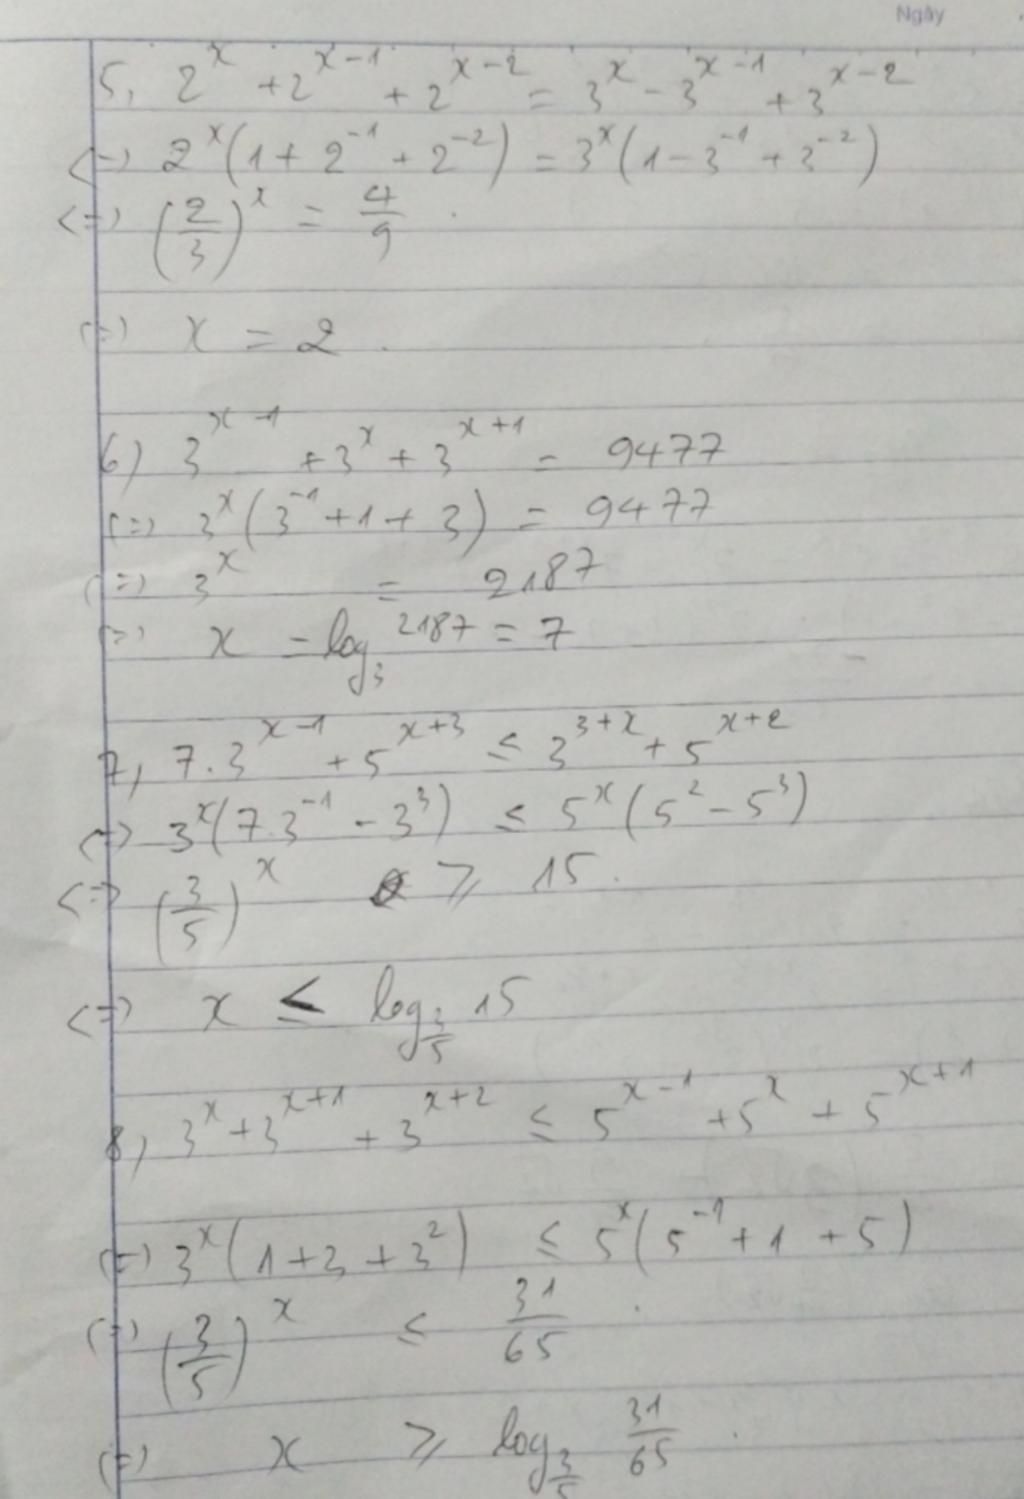 Ngày
5, 2^x + 2^{x-1} + 2^{x-2} = 3^x - 3^{x-1} + 3^{x-2}
(=) 2^x (1 + 2^{-1} + 2^{-2}) = 3^x (1 - 3^{-1} + 3^{-2})
<=> (2/3)^x = 4/9 .
(=) x = 2 .
6) 3^{x-1} + 3^x + 3^{x+1} = 9477
(=) 3^x (3^{-1} + 1 + 3) = 9477
(=) 3^x = 2187
(=) x = log_3 2187 = 7
7, 7.3^{x-1} + 5^{x+3} ≤ 3^{3+x} + 5^{x+2}
(=) 3^x (7.3^{-1} - 3^3) ≤ 5^x (5^2 - 5^3)
<=> (3/5)^x ≥ 15 .
<=> x ≤ log_{3/5} 15
8, 3^x + 3^{x+1} + 3^{x+2} ≤ 5^{x-1} + 5^x + 5^{x+1}
(=) 3^x (1 + 3 + 3^2) ≤ 5^x (5^{-1} + 1 + 5)
(=) (3/5)^x ≤ 31/65 .
(=) x ≥ log_{3/5} 31/65 .